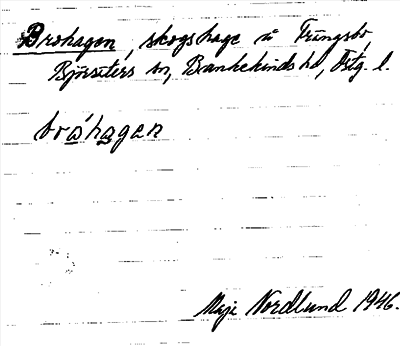 Brohagen, skogshage å Trungsbo,
Björsäters sn, Bankekinds hd, Östg. l.
bro̱´ha̱gen
Maje Nordlund 1946.